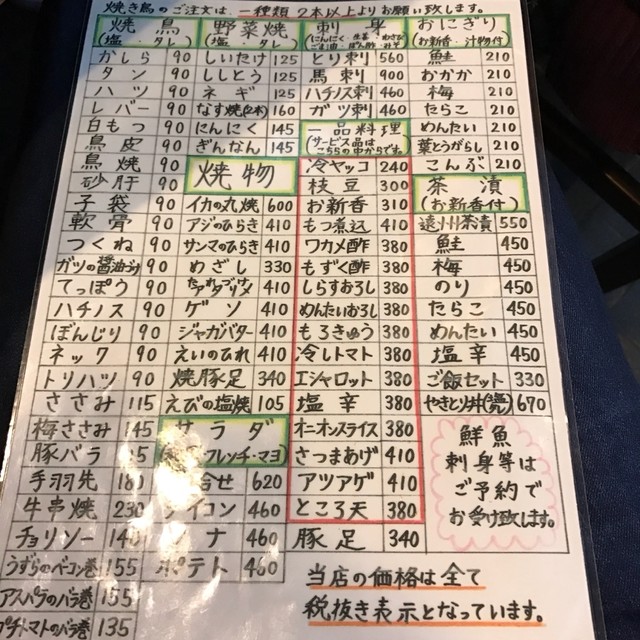 焼き鳥のご注文は、一種類 2本以上よりお願い致します。
焼鳥
(塩・タレ)
かしら 90
タン 90
ハツ 90
レバー 90
白もつ 90
鳥皮 90
鳥焼 90
砂肝 90
子袋 90
軟骨 90
つくね 90
ガツの醤油 90
てっぽう 90
ハチノス 90
ぼんじり 90
ネック 90
トリハツ 90
ささみ 115
梅ささみ 145
豚バラ
手羽先 180
牛串焼 230
チョリソー 140
うずらのベーコン巻 155
アスパラのバラ巻 155
プチトマトのバラ巻 135
野菜焼
(塩・タレ)
しいたけ 125
ししとう 125
ネギ 125
なす焼(2本) 160
にんにく 145
ぎんなん 145
焼物
イカの丸焼 600
アジのひらき 410
サンマのひらき 410
めざし 330
410
ゲソ 410
ジャガバター 410
えいのひれ 410
焼豚足 340
えびの塩焼 105
サラダ
フレンチ・マヨ
合せ 620
ダイコン 460
ツナ 460
ポテト 460
刺身
(にんにく・生姜・わさび
ごま油・ぽん酢・みそ)
とり刺 560
馬刺 900
ハチノス刺 460
ガツ刺 460
一品料理
(サービス品は
こちらの中からです。)
冷ヤッコ 240
枝豆 300
お新香 310
もつ煮込 410
ワカメ酢 380
もずく酢 380
しらすおろし 380
めんたいおろし 380
もろきゅう 380
冷しトマト 380
エシャロット 380
塩辛 380
オニオンスライス 380
さつまあげ 410
アツアゲ 410
ところ天 380
豚足 340
おにぎり
(お新香・汁物付)
鮭 210
おかか 210
梅 210
たらこ 210
めんたい 210
葉とうがらし 210
こんぶ 210
茶漬
(お新香付)
遠州茶漬 550
鮭 450
梅 450
のり 450
たらこ 450
めんたい 450
塩辛 450
ご飯セット 330
やきとり丼 670
鮮魚
刺身等は
ご予約で
お受け致します。
当店の価格は全て
税抜き表示となっています。